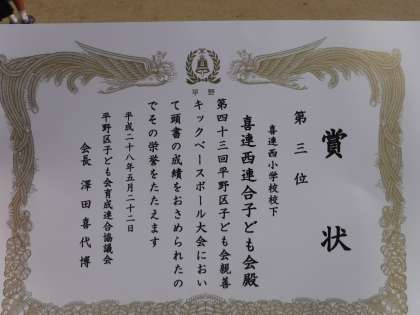 平野
賞状
第三位
喜連西小学校校下
喜連西連合子ども会殿
第四十三回平野区子ども会親善
キックベースボール大会におい
て頭書の成績をおさめられたの
でその栄誉をたたえます
平成二十八年五月二十二日
平野区子ども会育成連合協議会
会長 澤田喜代博